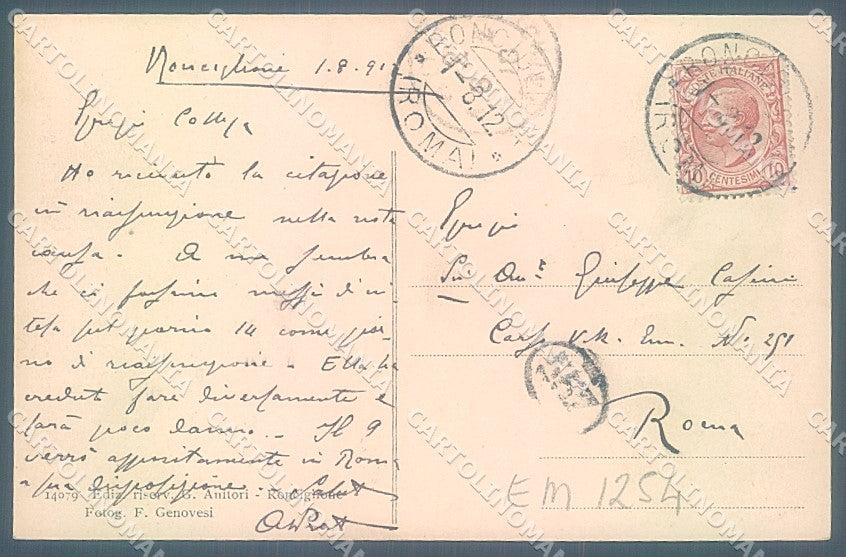 Ronciglione 1.8.912
Egregio Collega
Ho ricevuto la citazione
in riassunzione nella nota
causa. A me sembra
che ci fossimo messi d'in
tesa pel giorno 14 come gior-
no di riassunzione. Ella ha
creduto fare diversamente e
sarà poco danno. Il 9
verrò appositamente in Roma
a sua disposizione. Saluti
14079 Ediz. riserv. G. Auttori - Ronciglione
Fotog. F. Genovesi
RONCIGLIONE
8.12
(ROMA)
POSTE ITALIANE
10 CENTESIMI 10
Egregio
Sig. Avv. Giuseppe
Corso V. E. No. 251
Roma
EM 1254
CARTOLINOMANIA